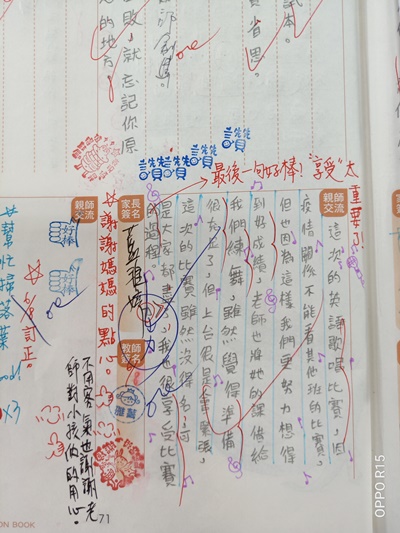 敗，就忘記你原
的地方。
省思。
試本。
讚讚讚讚讚
最後一句好棒！"享受"太
重要了！
親師交流
這次的英誦歌唱比賽，因
疫情關係不能看其他班的比賽，
但也因為這樣我們更努力想得
到好成績，老師也將她的課借給
我們練舞，雖然覺得準備
很充足了，但上台很是會緊張，
這次的比賽雖然沒得名，可
是大家都盡力，我也很享受比賽
的過程。
家長簽名
教師簽名
☆謝謝媽媽的點心。
不用客氣也謝謝老
師對小孩們的用心。
親師交流
好棒
☆6/8訂正。
☆幫忙掃落葉
x3
71
ON BOOK
OPPO R15